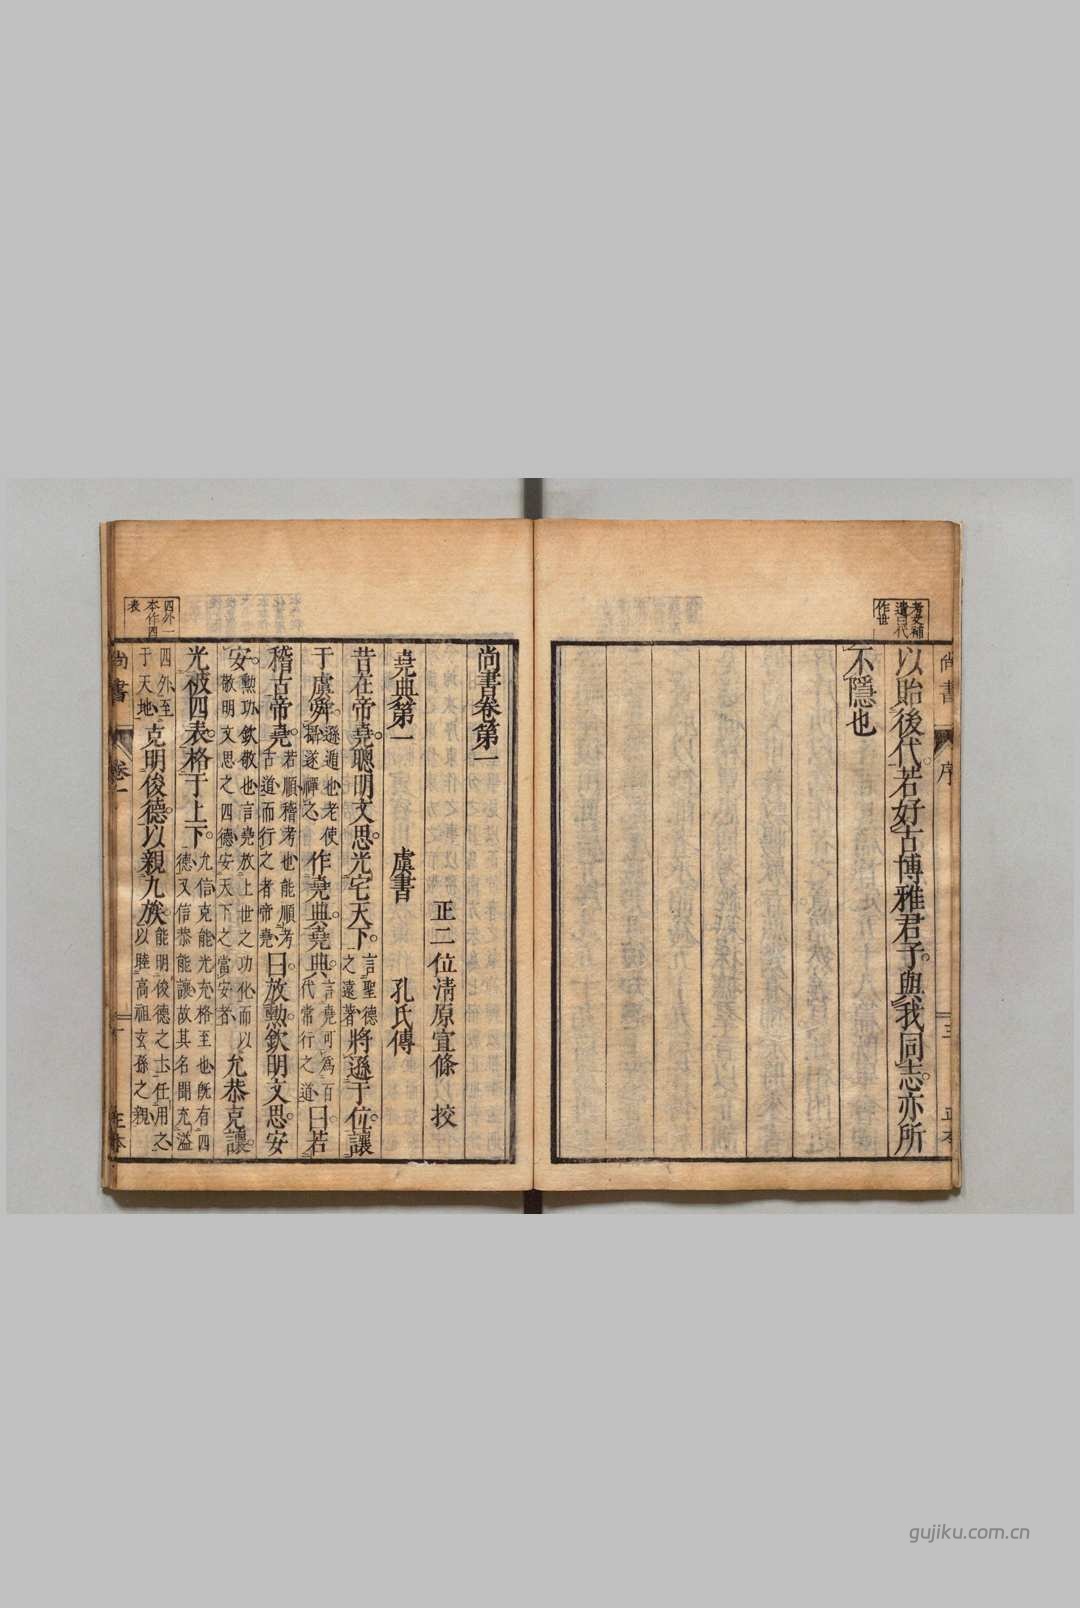 考文補
遺古代
作世
以貽後代。若好古博雅君子。與我同志。亦所
不隱也
尚書
序
三
正本
尚書卷第一
正二位清原宣條 校
堯典第一 虞書 孔氏傳
昔在帝堯。聰明文思。光宅天下。言聖德之遠著將遜于位。讓
于虞舜。遜遁也老使攝遂禪之作堯典。堯典。言堯可爲百代常行之道曰若
稽古帝堯。若順稽考也能順考古道而行之者帝堯曰。放勲欽明文思安
安。勲功欽敬也言堯放上世之功化而以敬明文思之四德安天下之當安者允恭克讓。
光被四表。格于上下。允信克能光充格至也既有四德又信恭能讓故其名聞充溢
四外至于天地克明俊德。以親九族。能明俊德之士任用之以睦高祖玄孫之親
四外一
本作四
表
尚書
卷一
一
正本
gujiku.com.cn